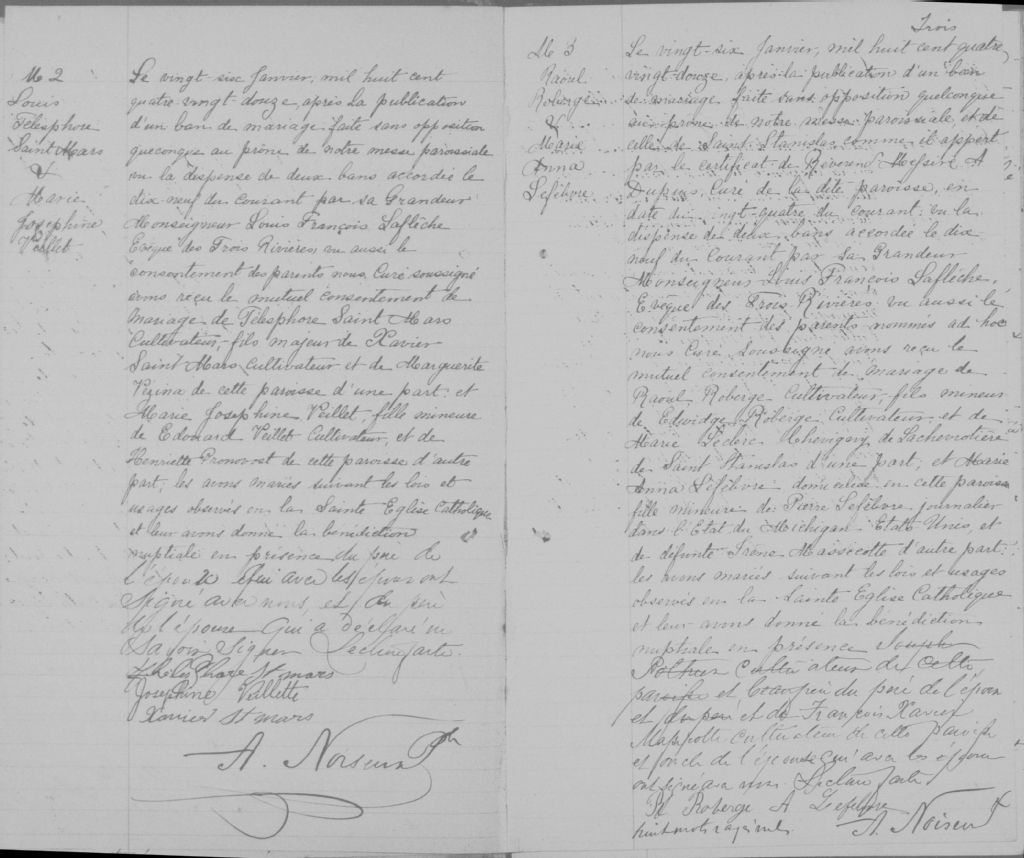 M 2
Louis
Télesphore
Saint Mars
&
Marie
Josephine
Veillet
Le vingt-six Janvier, mil huit cent
quatre-vingt-douze, après la publication
d'un ban de mariage faite sans opposition
queconque au prône de notre messe paroissiale
vu la dispense de deux bans accordée le
dix-neuf du courant par sa Grandeur
Monseigneur Louis François Laflèche
Evêque des Trois Rivières, vu aussi le
consentement des parents nous, Curé soussigné
avons reçu le mutuel consentement de
mariage de Télesphore Saint Mars
Cultivateur, fils majeur de Xavier
Saint Mars Cultivateur et de Marguerite
Vezina de cette paroisse d'une part; et
Marie Josephine Veillet, fille mineure
de Edouard Veillet Cultivateur, et de
Henriette Pronovost de cette paroisse d'autre
part; les avons mariés suivant les lois et
usages observés en la Sainte Eglise Catholique
et leur avons donné la bénédiction
nuptiale en présence du père de
l'épouse qui avec les époux ont
Signé avec nous, et du père
de l'épouse qui a déclaré ne
Savoir Signer Lecture faite.
St mars
Josephine Vallette
Xavier St mars
A. Noiseux Ptr
Trois
M 3
Raoul
Roberge
&
Marie
Anna
Lefebvre
Le vingt-six Janvier, mil huit cent quatre
vingt-douze, après la publication d'un ban
de mariage faite sans opposition quelconque
au prône de notre messe paroissiale, et de
celle de Saint Stanislas comme il appert
par le certificat du Révérend Messire A
Dupuis, Curé de la dite paroisse, en
date du vingt-quatre du courant; vu la
dispense de deux bans accordée le dix
neuf du Courant par Sa Grandeur
Monseigneur Louis François Laflèche,
Evêque des Trois Rivières vu aussi le
consentement des parents nommés ad hoc
nous Curé Soussigné avons reçu le
mutuel consentement de mariage de
Raoul Roberge Cultivateur, fils mineur
de Edwidge Roberge Cultivateur et de
Marie Leclerc de Lachevrotière
de Saint Stanislas d'une part; et Marie
Anna Lefebvre domiciliée en cette paroisse
fille mineure de Pierre Lefebvre journalier
dans l'Etat du Michigan Etats Unis, et
de défunte Irène Massicotte d'autre part;
les avons mariés suivant les lois et usages
observés en la Sainte Eglise Catholique
et leur avons donné la bénédiction
nuptiale en présence
Cultivateur de cette
paroisse et du père de l'époux
et et de François Xavier
cultivateur de cette paroisse
et oncle de l'épouse qui avec les époux
ont signé avec nous. Lecture faite
Rl Roberge A Lefebvre
huit mots rayés nuls. A. Noiseux